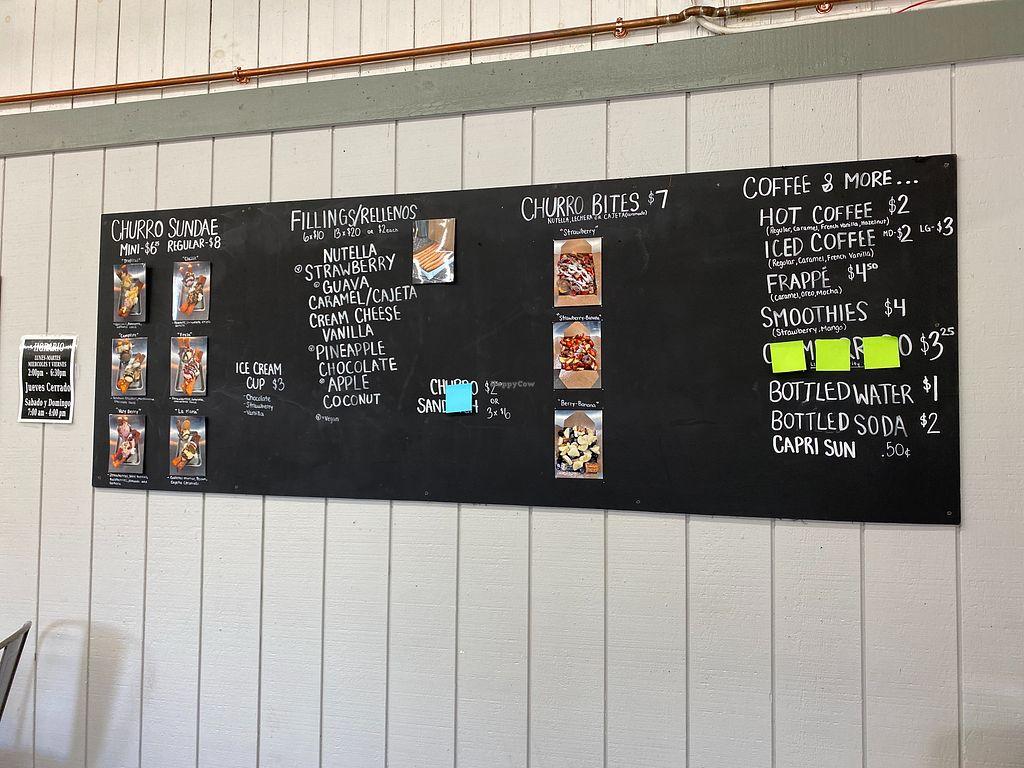 HORARIO
LUNES-MARTES
MIERCOLES Y VIERNES
2:00pm - 6:30pm
Jueves Cerrado
Sabado y Domingo
7:00 am - 4:00 pm
CHURRO SUNDAE
MINI-$6 REGULAR-$8
"Classic"
"Fiesta"
"Very Berry"
ICE CREAM
CUP $3
• Chocolate
• Strawberry
• Vanilla
FILLINGS/RELLENOS
6x$10 13x$20 or $2 each
NUTELLA
ⓥSTRAWBERRY
ⓥGUAVA
CARAMEL/CAJETA
CREAM CHEESE
VANILLA
ⓥPINEAPPLE
CHOCOLATE
ⓥAPPLE
COCONUT
ⓥ=Vegan
CHURRO
OR
HappyCow
CHURRO BITES $7
NUTELLA, LECHERA OR CAJETA (caramelo)
"Strawberry"
"Strawberry-Banana"
"Berry-Banana"
COFFEE & MORE...
HOT COFFEE $2
(Regular, Caramel, French Vanilla, Hazelnut)
ICED COFFEE MD-$2 LG-$3
(Regular, Caramel, French Vanilla)
FRAPPÉ $4.50
(Caramel, Oreo, Mocha)
SMOOTHIES $4
(Strawberry, Mango)
$3.25
BOTTLED WATER $1
BOTTLED SODA $2
CAPRI SUN .50¢